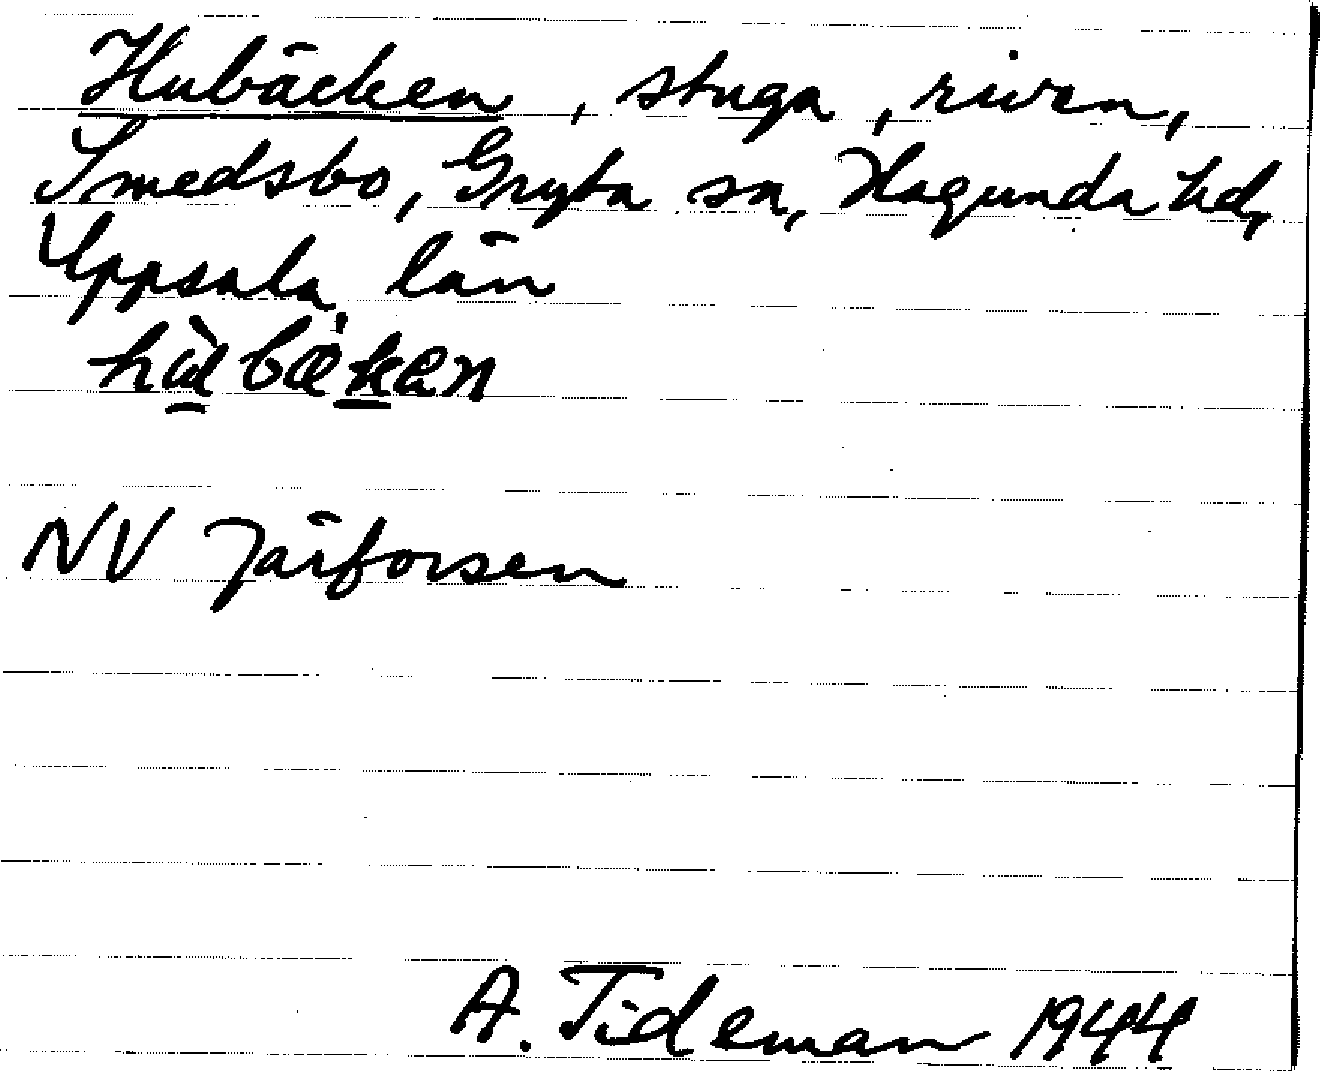 Hubäcken, stuga, riven,
Smedsbo, Gryta sn, Hagunda hd,
Uppsala län
NV Järforsen
A. Tideman 1944